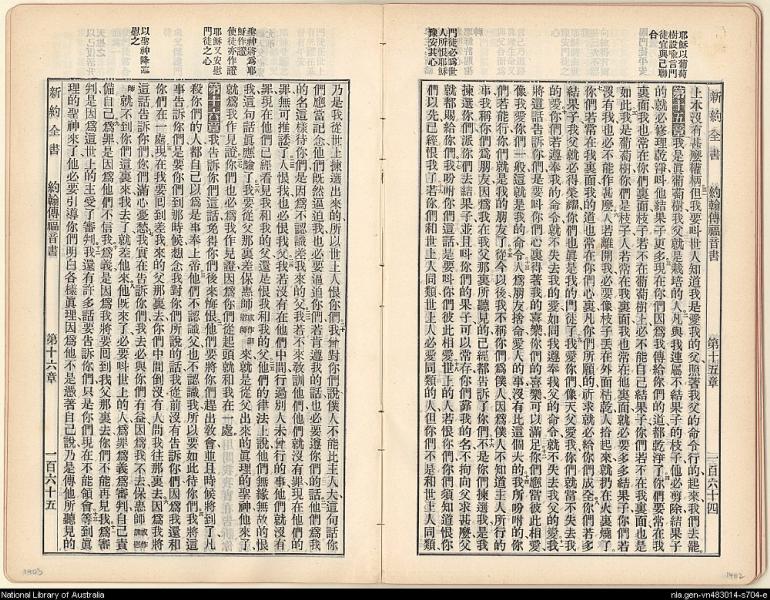 耶穌以葡萄
樹設喩言門
徒宜與己聯
合
門徒必爲世
人所恨耶穌
豫安其心
新約全書 約翰傳福音書 第十五章 一百六十四
上本沒有甚麽權柄但我要叫世人知道我是愛我的父照著我父的命令行的起來我們去罷
第十五章我是眞葡萄樹我父就是栽培的人凡與我連屬不結果子的枝子他必剪除結果子
的就必修理乾淨叫他結果子更多現在你們因爲我傳給你們的道都乾淨了你們要常在我
裏面我也常在你們裏面枝子若不在葡萄樹上必不能自己結果子你們若不在我裏面也是
如此我是葡萄樹你們是枝子人若常在我裏面我也常在他裏面就必要多多結果子你們若
沒有我也必不能作甚麽人若離開我必要像枝子丟在外面枯乾人拾起來就扔在火裏燒了
你們若常在我裏面我的道也常在你們心裏凡你們所願的祈求就必給你們成全你們若多
結果子我父就必得榮耀你們也眞是我的門徒了我愛你們像天父愛我你們就當不失去我
的愛你們若遵奉我的命令就不失去我的愛如同我遵奉我父的命令就不失去我父的愛我
將這話告訴你們是要叫你們心裏得著我的喜樂你們的喜樂可以滿足你們應當彼此相愛
像我愛你們一般這就是我的命令人爲朋友捨命愛人的事沒有比這個大的我所吩咐的你
們若能行你們就是我的朋友了從今以後我不稱你們爲僕人因爲僕人不知道主人所行的
事我稱你們爲朋友因爲我在我父那裏所聽見的已經都告訴了你們不是你們揀選我是我
揀選你們派你們去結果子並且叫你們的果子可以常存你們靠我的名不拘向父求甚麽父
就都賜給你們我吩咐你們這話是要叫你們彼此相愛世上的人若恨你們你們須知道恨你
們以先已經恨我了若你們和世上人同類世上人必愛同類的人但你們不是和世上人同類
聖神將爲耶
穌作證
使徒亦作證
耶穌又安慰
門徒之心
以聖神降臨
慰之
新約全書 約翰傳福音書 第十六章 一百六十五
乃是我從世上揀選出來的所以世上人恨你們我曾對你們說僕人不能比主人大這句話你
們應當記念他們旣然逼迫我也必要逼迫你們若肯遵我的話也必要遵你們的話他們爲我
的名這樣待你們是因爲不認識差我來的父我若不來敎訓他們他們就沒有罪現在他們的
罪無可推諉了人恨我也必恨我父我若沒有在他們中間行過別人未曾行的事他們就沒有
罪現在他們已經看見我和我的父還是恨我和我的父他們的律法上說他們無緣無故的恨
我這句話眞應驗了我要從父那裏差保惠師來就是從父出來的眞理的聖神他來了
就爲我作見證你們也必爲我作見證因爲你們從起頭就和我在一處
第十六章我告訴你們這話免得你們後來悔恨他們要將你們趕出敎會並且時候將到了凡
殺你們的人都自己以爲是事奉上帝他們不認識父也不認識我所以要如此待你們我將這
事告訴你們是要你們到那時候想念我對你們所說的話我從前沒有告訴你們因爲我還和
你們在一處現在我要回到差我來的父那裏去你們中間倒沒有人問我往那裏去因爲我將
這話告訴你們你們滿心憂愁我實在告訴你們我去必與你們有益因爲我不去保惠師
就不到你們這裏來我去了就差他來他旣來了必要叫世上的人爲罪爲義爲審判自己責
備自己爲罪是因爲他們不信我爲義是因爲我將要回到我父那裏去你們不能再見我爲審
判是因爲這世上的主受了審判我還有許多話要告訴你們只是你們現在不能領會等到眞
理的聖神來了他必要引導你們明白各樣眞理因爲他不是憑著自己說乃是傳他所聽見的
1903
1902
National Library of Australia
nla.gen-vn483014-s704-e